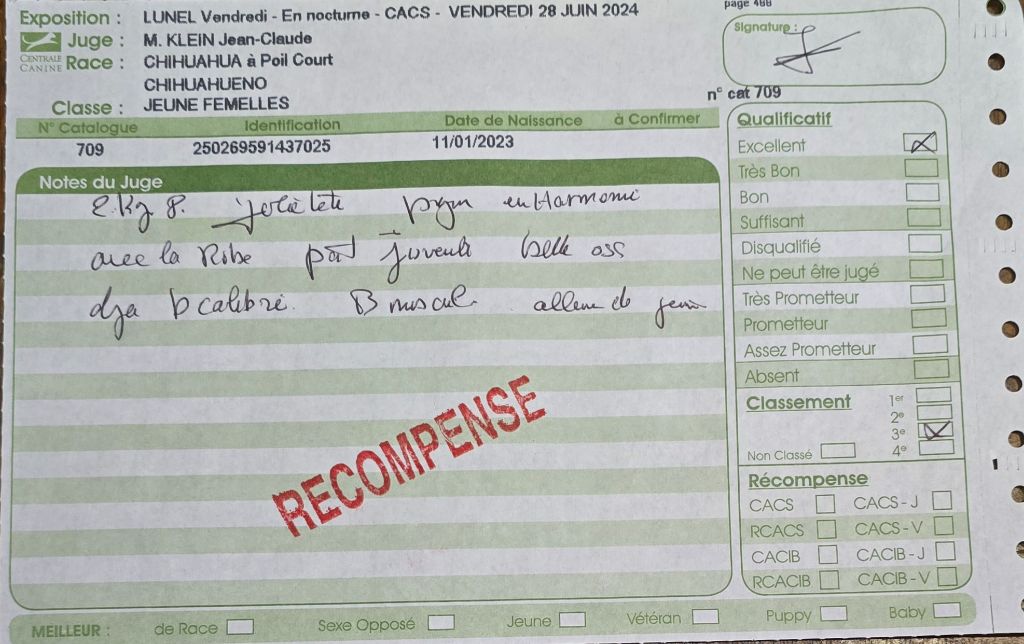 page 488
Exposition : LUNEL Vendredi - En nocturne - CACS - VENDREDI 28 JUIN 2024
Signature :
Juge : M. KLEIN Jean-Claude
CENTRALE CANINE
Race : CHIHUAHUA à Poil Court
CHIHUAHUENO
Classe : JEUNE FEMELLES
n° cat 709
N° Catalogue Identification Date de Naissance à Confirmer
709 250269591437025 11/01/2023
Notes du Juge
jolie tête en Harmonie
avec la Robe juvenile belle oss
B calibré. B muscul. allure de
RECOMPENSE
Qualificatif
Excellent
Très Bon
Bon
Suffisant
Disqualifié
Ne peut être jugé
Très Prometteur
Prometteur
Assez Prometteur
Absent
Classement
1er
2e
3e
4e
Non Classé
Récompense
CACS CACS - J
RCACS CACS - V
CACIB CACIB - J
RCACIB CACIB - V
MEILLEUR : de Race Sexe Opposé Jeune Vétéran Puppy Baby